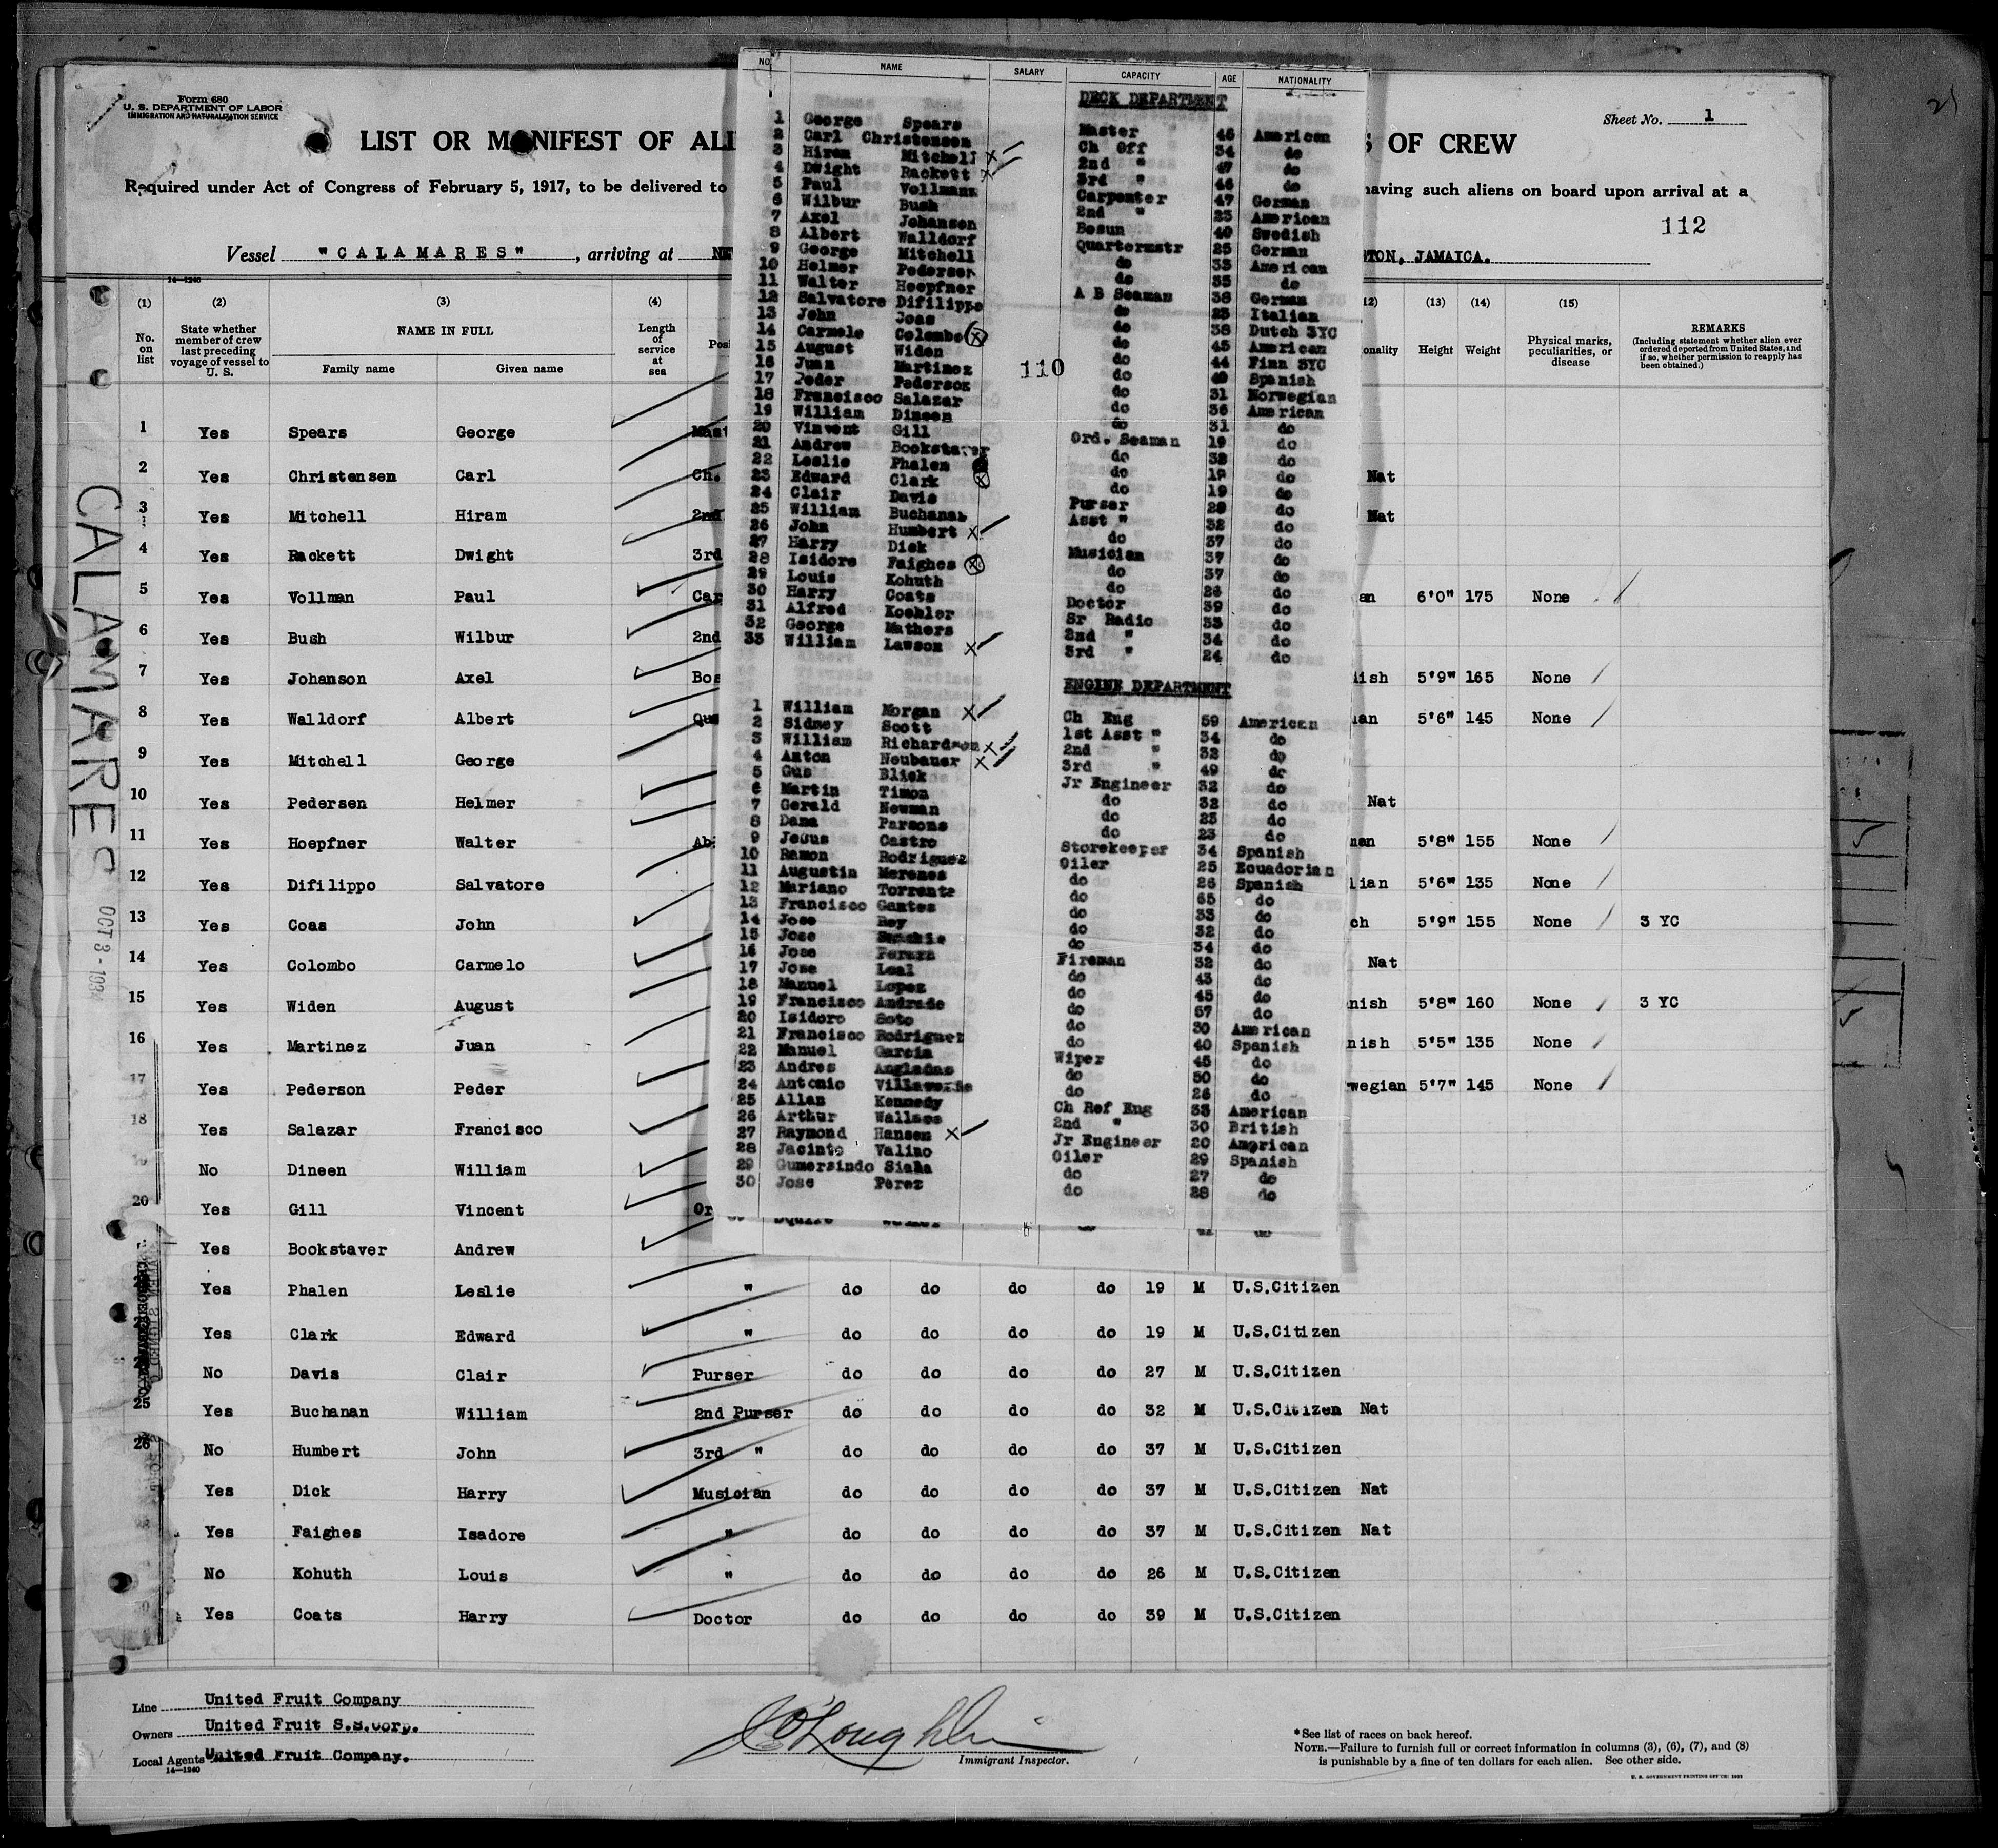 Form 680
U. S. DEPARTMENT OF LABOR
IMMIGRATION AND NATURALIZATION SERVICE
LIST OR MANIFEST OF ALI
S OF CREW
Sheet No. 1
Required under Act of Congress of February 5, 1917, to be delivered to
having such aliens on board upon arrival at a
112
Vessel "CALAMARES", arriving at
TON, JAMAICA.
14—1240
(1) (2) (3) (4) (12) (13) (14) (15)
No. on list
State whether member of crew last preceding voyage of vessel to U. S.
NAME IN FULL
Family name Given name
Length of service at sea
Height Weight
Physical marks, peculiarities, or disease
REMARKS
(Including statement whether alien ever ordered deported from United States, and if so, whether permission to reapply has been obtained.)
1 Yes Spears George
2 Yes Christensen Carl Ch. Nat
3 Yes Mitchell Hiram 2nd Nat
4 Yes Rackett Dwight 3rd
5 Yes Vollman Paul Car an 6'0" 175 None
6 Yes Bush Wilbur 2nd
7 Yes Johanson Axel Bos ish 5'9" 165 None
8 Yes Walldorf Albert Qua an 5'6" 145 None
9 Yes Mitchell George
10 Yes Pedersen Helmer Nat
11 Yes Hoepfner Walter Ab man 5'8" 155 None
12 Yes Difilippo Salvatore lian 5'6" 135 None
13 Yes Coas John ch 5'9" 155 None 3 YC
14 Yes Colombo Carmelo Nat
15 Yes Widen August nish 5'8" 160 None 3 YC
16 Yes Martinez Juan nish 5'5" 135 None
17 Yes Pederson Peder wegian 5'7" 145 None
18 Yes Salazar Francisco
No Dineen William
20 Yes Gill Vincent Or
Yes Bookstaver Andrew
Yes Phalen Leslie " do do do do 19 M U.S.Citizen
Yes Clark Edward " do do do do 19 M U.S.Citizen
No Davis Clair Purser do do do do 27 M U.S.Citizen
25 Yes Buchanan William 2nd Purser do do do do 32 M U.S.Citizen Nat
26 No Humbert John 3rd " do do do do 37 M U.S.Citizen
Yes Dick Harry Musician do do do do 37 M U.S.Citizen Nat
Yes Faighes Isadore " do do do do 37 M U.S.Citizen Nat
No Kohuth Louis " do do do do 26 M U.S.Citizen
Yes Coats Harry Doctor do do do do 39 M U.S.Citizen
CALAMARES
OCT 3 - 193
NO. NAME SALARY CAPACITY AGE NATIONALITY
DECK DEPARTMENT
1 George Spears Master 46 American
2 Carl Christensen Ch Off 34 do
3 Hiram Mitchell X 2nd " 47 do
4 Dwight Rackett X 3rd " 46 do
5 Paul Vollmann Carpenter 47 German
6 Wilbur Bush 2nd " 23 American
7 Axel Johansen Bosun 40 Swedish
8 Albert Walldorf Quartermstr 25 German
9 George Mitchell do 33 American
10 Helmer Pedersen do 35 do
11 Walter Hoepfner A B Seaman 38 German
12 Salvatore Difilippo do 23 Italian
13 John Joas do 38 Dutch 3YC
14 Carmelo Colombo X do 45 American
15 August Widen do 44 Finn 3YC
16 Juan Martinez do 40 Spanish
17 Peder Pederson do 31 Norwegian
18 Francisco Salazar do 36 American
19 William Dineen do 31 do
20 Vinvent Gill Ord. Seaman 19 do
21 Andrew Bookstaver do 38 do
22 Leslie Phalen do 19 do
23 Edward Clark X do 19 do
24 Clair Davis Purser 28 do
25 William Buchanan Asst " 32 do
26 John Humbert X do 37 do
27 Harry Dick Musician 37 do
28 Isidore Faighes X do 37 do
29 Louis Kohuth do 26 do
30 Harry Coats Doctor 39 do
31 Alfred Koehler Sr Radio 33 do
32 George Mathers 2nd " 34 do
33 William Lawson X 3rd " 24 do
110
ENGINE DEPARTMENT
1 William Morgan X Ch Eng 59 American
2 Sidney Scott 1st Asst " 34 do
3 William Richardson X 2nd " 32 do
4 Anton Neubauer X 3rd " 49 do
5 Gus Blick Jr Engineer 32 do
6 Martin Timon do 32 do
7 Gerald Newman do 23 do
8 Dana Parsons do 23 do
9 Jesus Castro Storekeeper 34 Spanish
10 Ramon Rodriguez Oiler 25 Ecuadorian
11 Augustin Merenes do 26 Spanish
12 Mariano Torrente do 65 do
13 Francisco Gantes do 33 do
14 Jose Rey do 32 do
15 Jose do 34 do
16 Jose Fireman 32 do
17 Jose Leal do 43 do
18 Manuel Lopez do 45 do
19 Francisco Andrade do 57 do
20 Isidoro Soto do 30 American
21 Francisco Rodriguez do 40 Spanish
22 Manuel Garcia Wiper 45 do
23 Andres Angladas do 50 do
24 Antonio Villaverde do 26 do
25 Allan Kennedy Ch Ref Eng 33 American
26 Arthur Wallace 2nd " 30 British
27 Raymond Hansen X Jr Engineer 20 American
28 Jacinto Valino Oiler 29 Spanish
29 Gumersindo Siaha do 27 do
30 Jose Perez do 28 do
Line United Fruit Company
Owners United Fruit S.S.Corp.
Local Agents United Fruit Company.
14—1240
J O'Loughlin
Immigrant Inspector.
*See list of races on back hereof.
NOTE.—Failure to furnish full or correct information in columns (3), (6), (7), and (8)
is punishable by a fine of ten dollars for each alien. See other side.